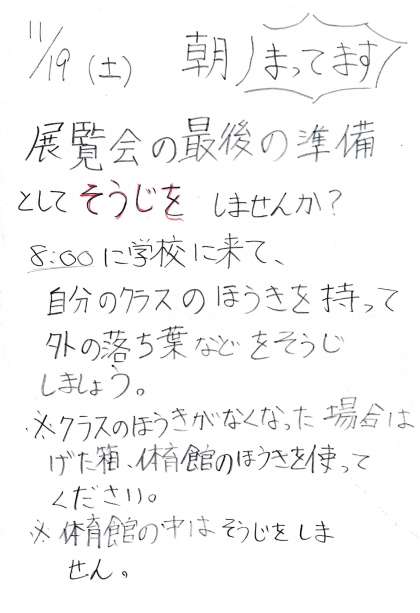 11/19(土) 朝 まってます
展覧会の最後の準備
としてそうじをしませんか?
8:00に学校に来て、
自分のクラスのほうきを持って
外の落ち葉などをそうじ
しましょう。
※クラスのほうきがなくなった場合は
げた箱、体育館のほうきを使って
ください。
※体育館の中はそうじをしま
せん。